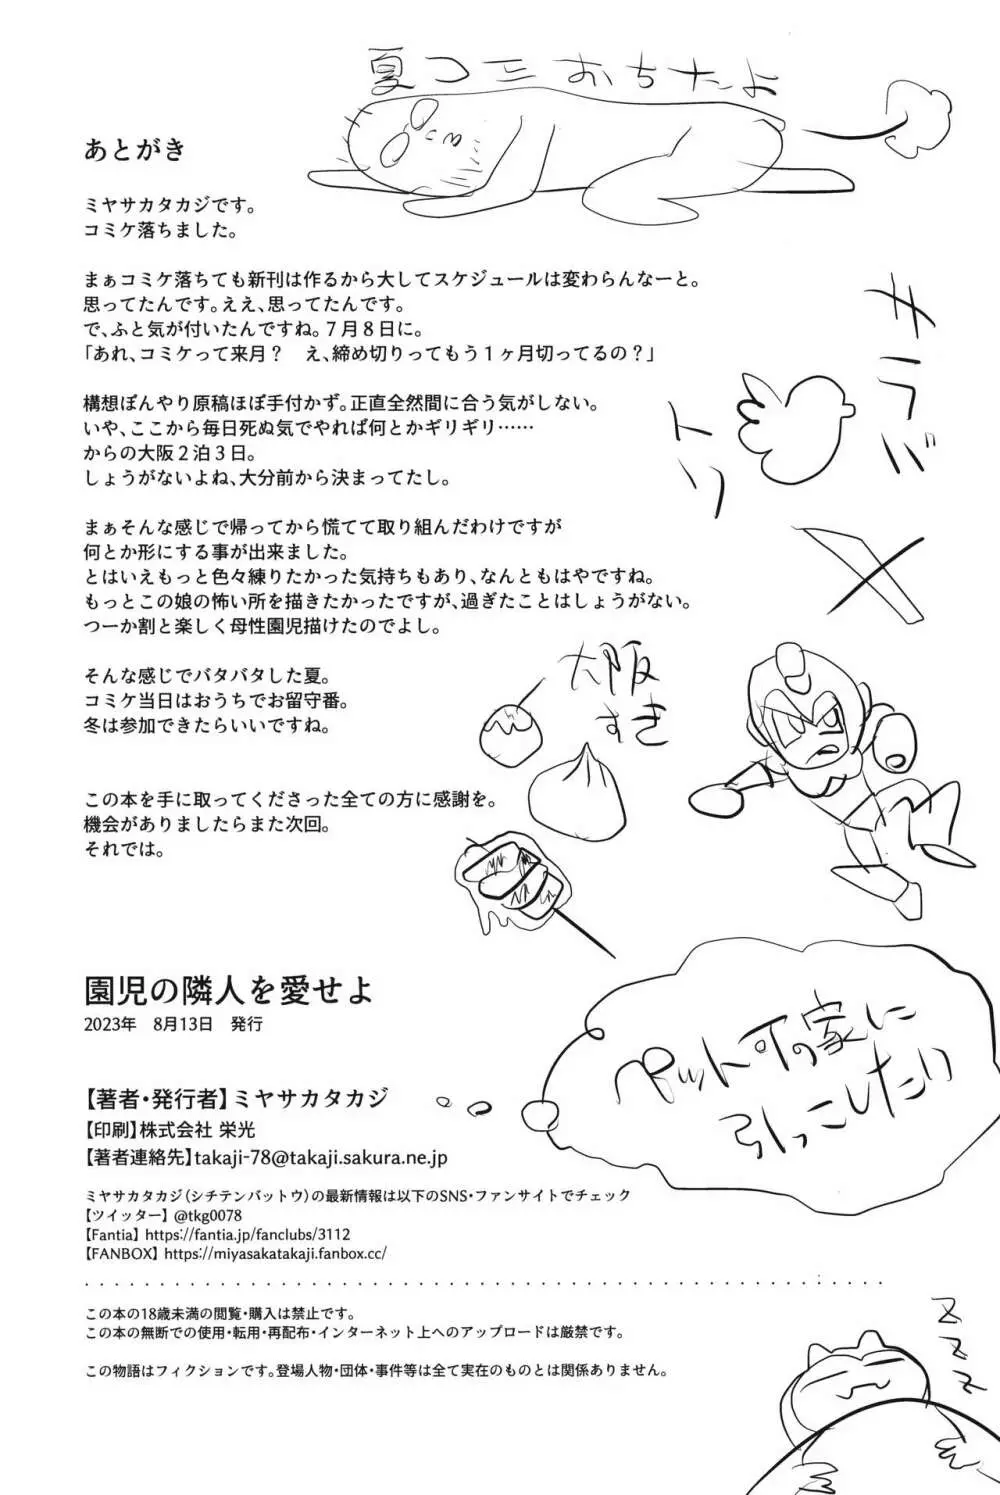 夏コミおちたよ
あとがき
ミヤサカタカジです。
コミケ落ちました。
まぁコミケ落ちても新刊は作るから大してスケジュールは変わらんなーと。
思ってたんです。ええ、思ってたんです。
で、ふと気が付いたんですね。7月8日に。
「あれ、コミケって来月？　え、締め切りってもう1ヶ月切ってるの？」
構想ぼんやり原稿ほぼ手付かず。正直全然間に合う気がしない。
いや、ここから毎日死ぬ気でやれば何とかギリギリ……
からの大阪2泊3日。
しょうがないよね、大分前から決まってたし。
まぁそんな感じで帰ってから慌てて取り組んだわけですが
何とか形にする事が出来ました。
とはいえもっと色々練りたかった気持ちもあり、なんともはやですね。
もっとこの娘の怖い所を描きたかったですが、過ぎたことはしょうがない。
つーか割と楽しく母性園児描けたのでよし。
そんな感じでバタバタした夏。
コミケ当日はおうちでお留守番。
冬は参加できたらいいですね。
この本を手に取ってくださった全ての方に感謝を。
機会がありましたらまた次回。
それでは。
サラバ
トリ
大阪
すき
ペット可の家に
引っこしたい
園児の隣人を愛せよ
2023年　8月13日　発行
【著者・発行者】ミヤサカタカジ
【印刷】株式会社 栄光
【著者連絡先】takaji-78@takaji.sakura.ne.jp
ミヤサカタカジ（シチテンバットウ）の最新情報は以下のSNS・ファンサイトでチェック
【ツイッター】 @tkg0078
【Fantia】 https://fantia.jp/fanclubs/3112
【FANBOX】 https://miyasakatakaji.fanbox.cc/
この本の18歳未満の閲覧・購入は禁止です。
この本の無断での使用・転用・再配布・インターネット上へのアップロードは厳禁です。
この物語はフィクションです。登場人物・団体・事件等は全て実在のものとは関係ありません。
Z
Z
Z